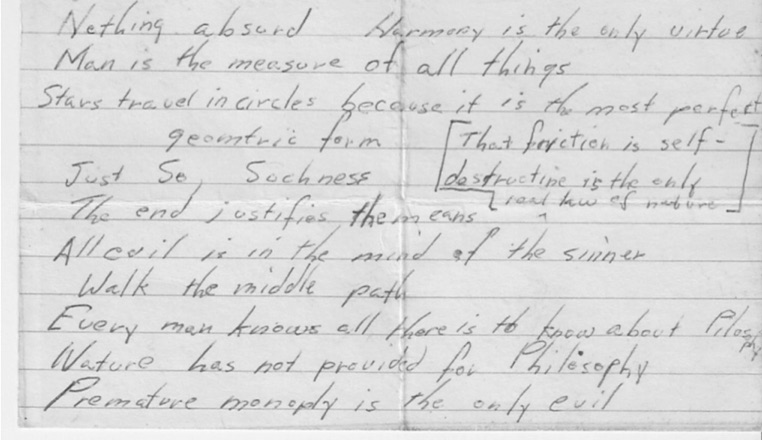 Nothing absurd Harmony is the only virtue
Man is the measure of all things
Stars travel in circles because it is the most perfect
geomtric form
[That friction is self-
destructine is the only
real law of nature]
Just So, Suchness
The end justifies the means
All evil is in the mind of the sinner
Walk the middle path
Every man knows all there is to know about Pilosphy
Nature has not provided for Philosophy
Premature monoply is the only evil